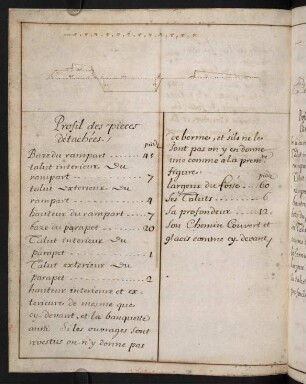 Profil des pieces
détachées /
pieds
Baze du rampart ...... 45
talut interieur Du
rampart ...... 7
talut Exterieur Du
rampart ...... 4
hauteur du rampart .... 7
baze du parapet ...... 20
Talut interieur du
parapet ...... 1
Talut exterieur du
parapet ...... 2
hauteur interieure et ex-
terieure de mesme que
cy devant, et la banquette
aussi Si les ouvrages sont
revestus on n'y donne pas
ce borme, et s'ils ne le
sont pas on y en donne
une comme a la premre
figure
pieds
largeur du fossé .... 60
Ses Taluts ...... 6
Sa profondeur .... 12
Son Chemin Couvert et
glacis comme cy devant /